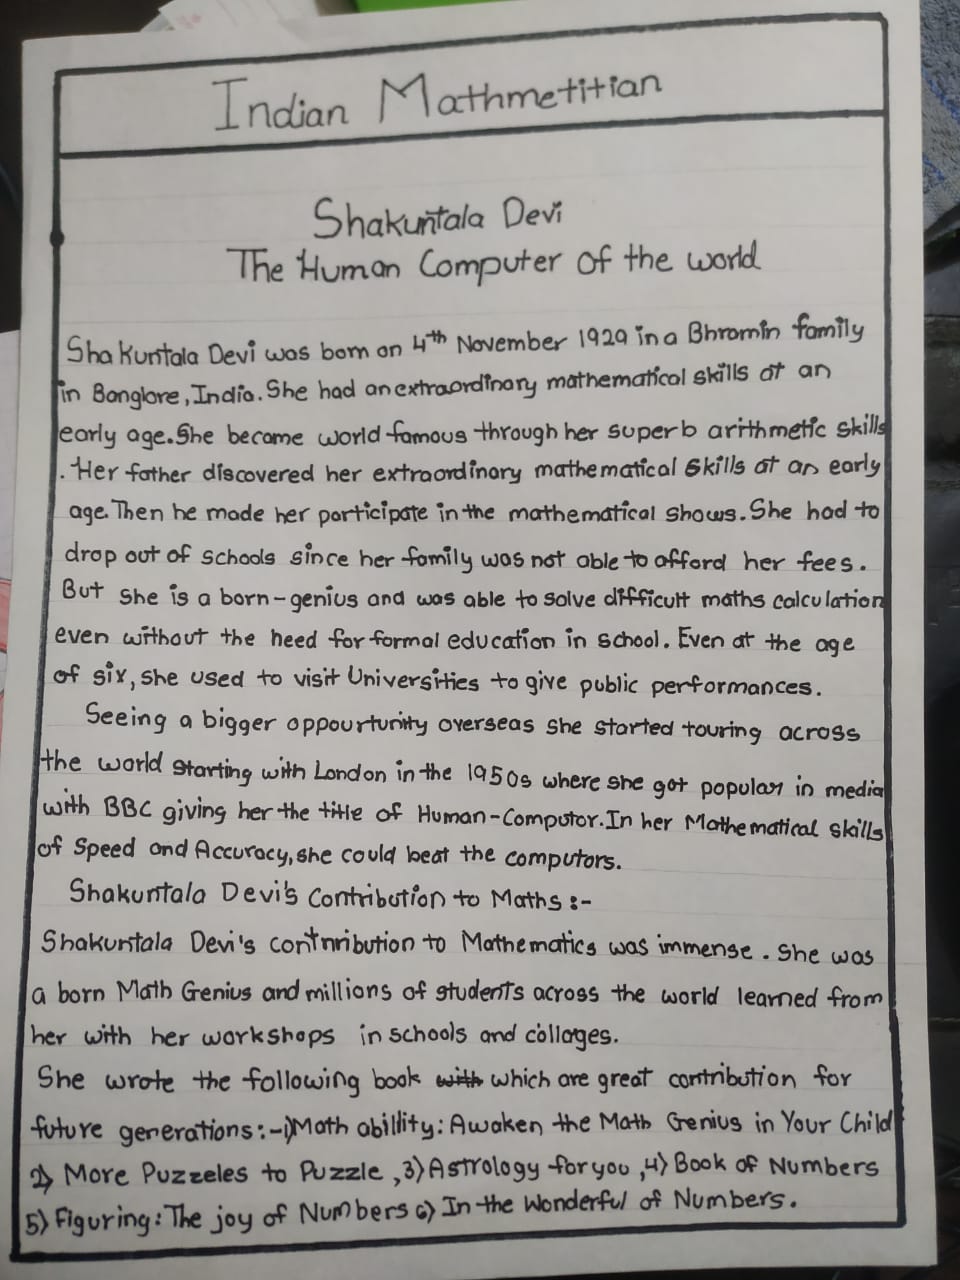 Indian Mathmetitian
Shakuntala Devi
The Human Computer of the world
Shakuntala Devi was born on 4th November 1929 in a Bhramin family
in Banglore, India. She had an extraordinary mathematical skills at an
early age. She became world famous through her superb arithmetic skills
. Her father discovered her extraordinary mathematical skills at an early
age. Then he made her participate in the mathematical shows. She had to
drop out of schools since her family was not able to afford her fees.
But she is a born-genius and was able to solve difficult maths calculation
even without the need for formal education in school. Even at the age
of six, she used to visit Universities to give public performances.
Seeing a bigger oppourtunity overseas she started touring across
the world starting with London in the 1950s where she got popular in media
with BBC giving her the title of Human-Computor. In her Mathematical skills
of Speed and Accuracy, she could beat the computors.
Shakuntala Devi's Contribution to Maths :-
Shakuntala Devi's contnribution to Mathematics was immense. She was
a born Math Genius and millions of students across the world learned from
her with her workshops in schools and collages.
She wrote the following book with which are great contribution for
future generations:-1) Math abillity: Awaken the Math Genius in Your Child
2) More Puzzeles to Puzzle, 3) Astrology for you, 4) Book of Numbers
5) Figuring: The joy of Numbers 6) In the Wonderful of Numbers.